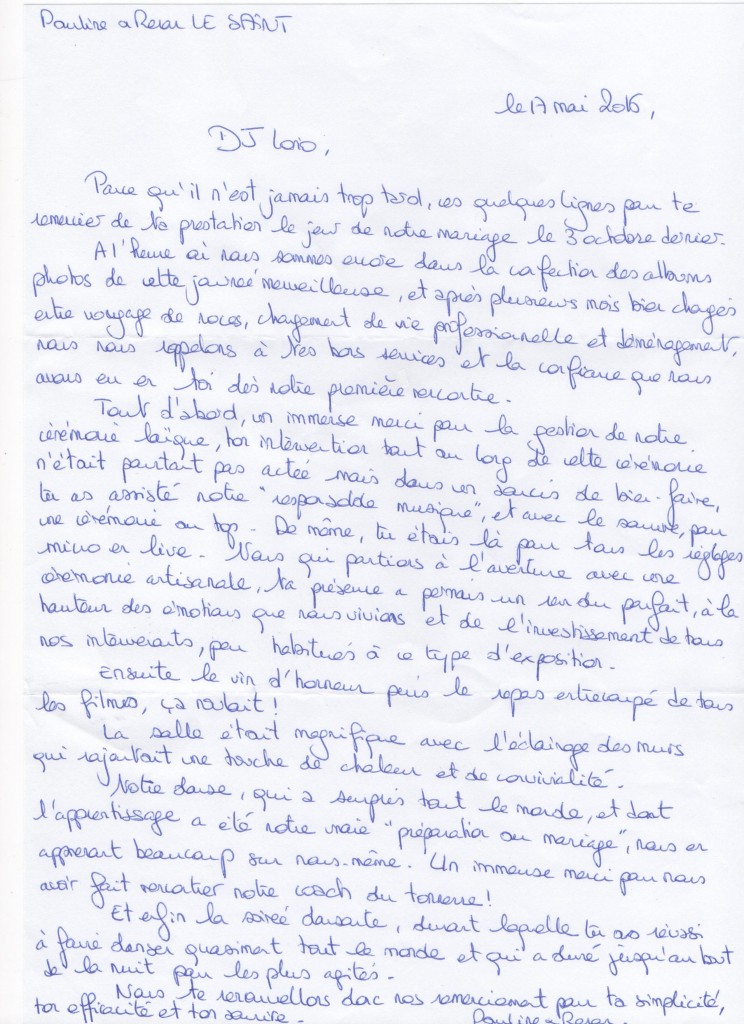 Pauline a Ronan LE SAINT
le 17 mai 2016,
DJ Loïo,
Parce qu'il n'est jamais trop tard, ces quelques lignes pour te
remercier de ta prestation le jour de notre mariage le 3 octobre dernier.
A l'heure où nous sommes encore dans la confection des albums
photos de cette journée merveilleuse, et après plusieurs mois bien chargés
entre voyage de noces, changement de vie professionnelle et déménagement,
nous nous rappelons à tes bons services et la confiance que nous
avons eu en toi dès notre première rencontre.
Tout d'abord, un immense merci pour la gestion de notre
cérémonie laïque, ton intervention tout au long de cette cérémonie
n'était pourtant pas actée mais dans un soucis de bien-faire,
tu as assisté notre "responsable musique", et avec le sourire, pour
une cérémonie au top. De même, tu étais là pour tous les réglages
micro en live. Nous qui partions à l'aventure avec une
cérémonie artisanale, ta présence a permis un rendu parfait, à la
hauteur des émotions que nous vivions et de l'investissement de tous
nos intervenants, peu habitués à ce type d'exposition.
Ensuite le vin d'honneur puis le repas entrecoupé de tous
les filmes, ça roulait !
La salle était magnifique avec l'éclairage des murs
qui rajoutait une touche de chaleur et de convivialité.
Notre danse, qui a surpris tout le monde, et dont
l'apprentissage a été notre vraie "préparation au mariage", nous en
apprenant beaucoup sur nous-même. Un immense merci pour nous
avoir fait rencontrer notre coach du tonnerre !
Et enfin la soirée dansante, durant laquelle tu as réussi
à faire danser quasiment tout le monde et qui a duré jusqu'au bout
de la nuit pour les plus agités.
Nous te renouvellons donc nos remerciement pour ta simplicité,
ton efficacité et ton sourire.
Pauline a Ronan.